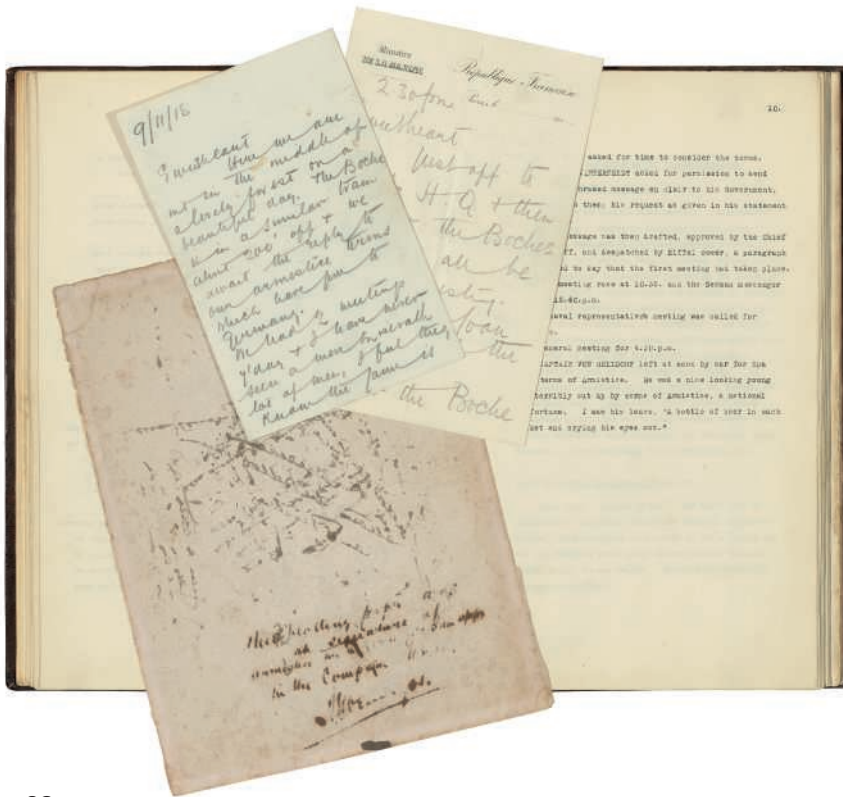 9/11/18
Sweetheart
Here we are
in the middle of
a lovely forest on a
beautiful day. The Boche
is in a similar train
about 200x off & we
await the reply to
our armistice terms
which have gone to
Germany.
We had 2 meetings
y'day & I have never
seen a more miserable
lot of men, I feel they
know the game is
Ministre
République Française
2.30 pm
weetheart
Just off to
H.Q & then
the Boches
all be
sting.
the
the Boche
10.
asked for time to consider the terms.
asked for permission to send
phrased message en clair to his Government.
them his request as given in his statement
essage was then drafted, approved by the Chief
ff, and despatched by Eiffel tower, a paragraph
d to say that the first meeting had taken place.
meeting rose at and the German messenger
p.m.
aval representatives meeting was called for
eneral meeting for p.m.
CAPTAIN VON HELLDORF left at once by car for Spa
terms of Armistice. He was a nice looking young
terribly cut up by terms of Armistice, a national
fortune. I saw him leave, "A bottle of beer in each
ket and crying his eyes out."
The Blotting paper
at signature of
armistice
in the